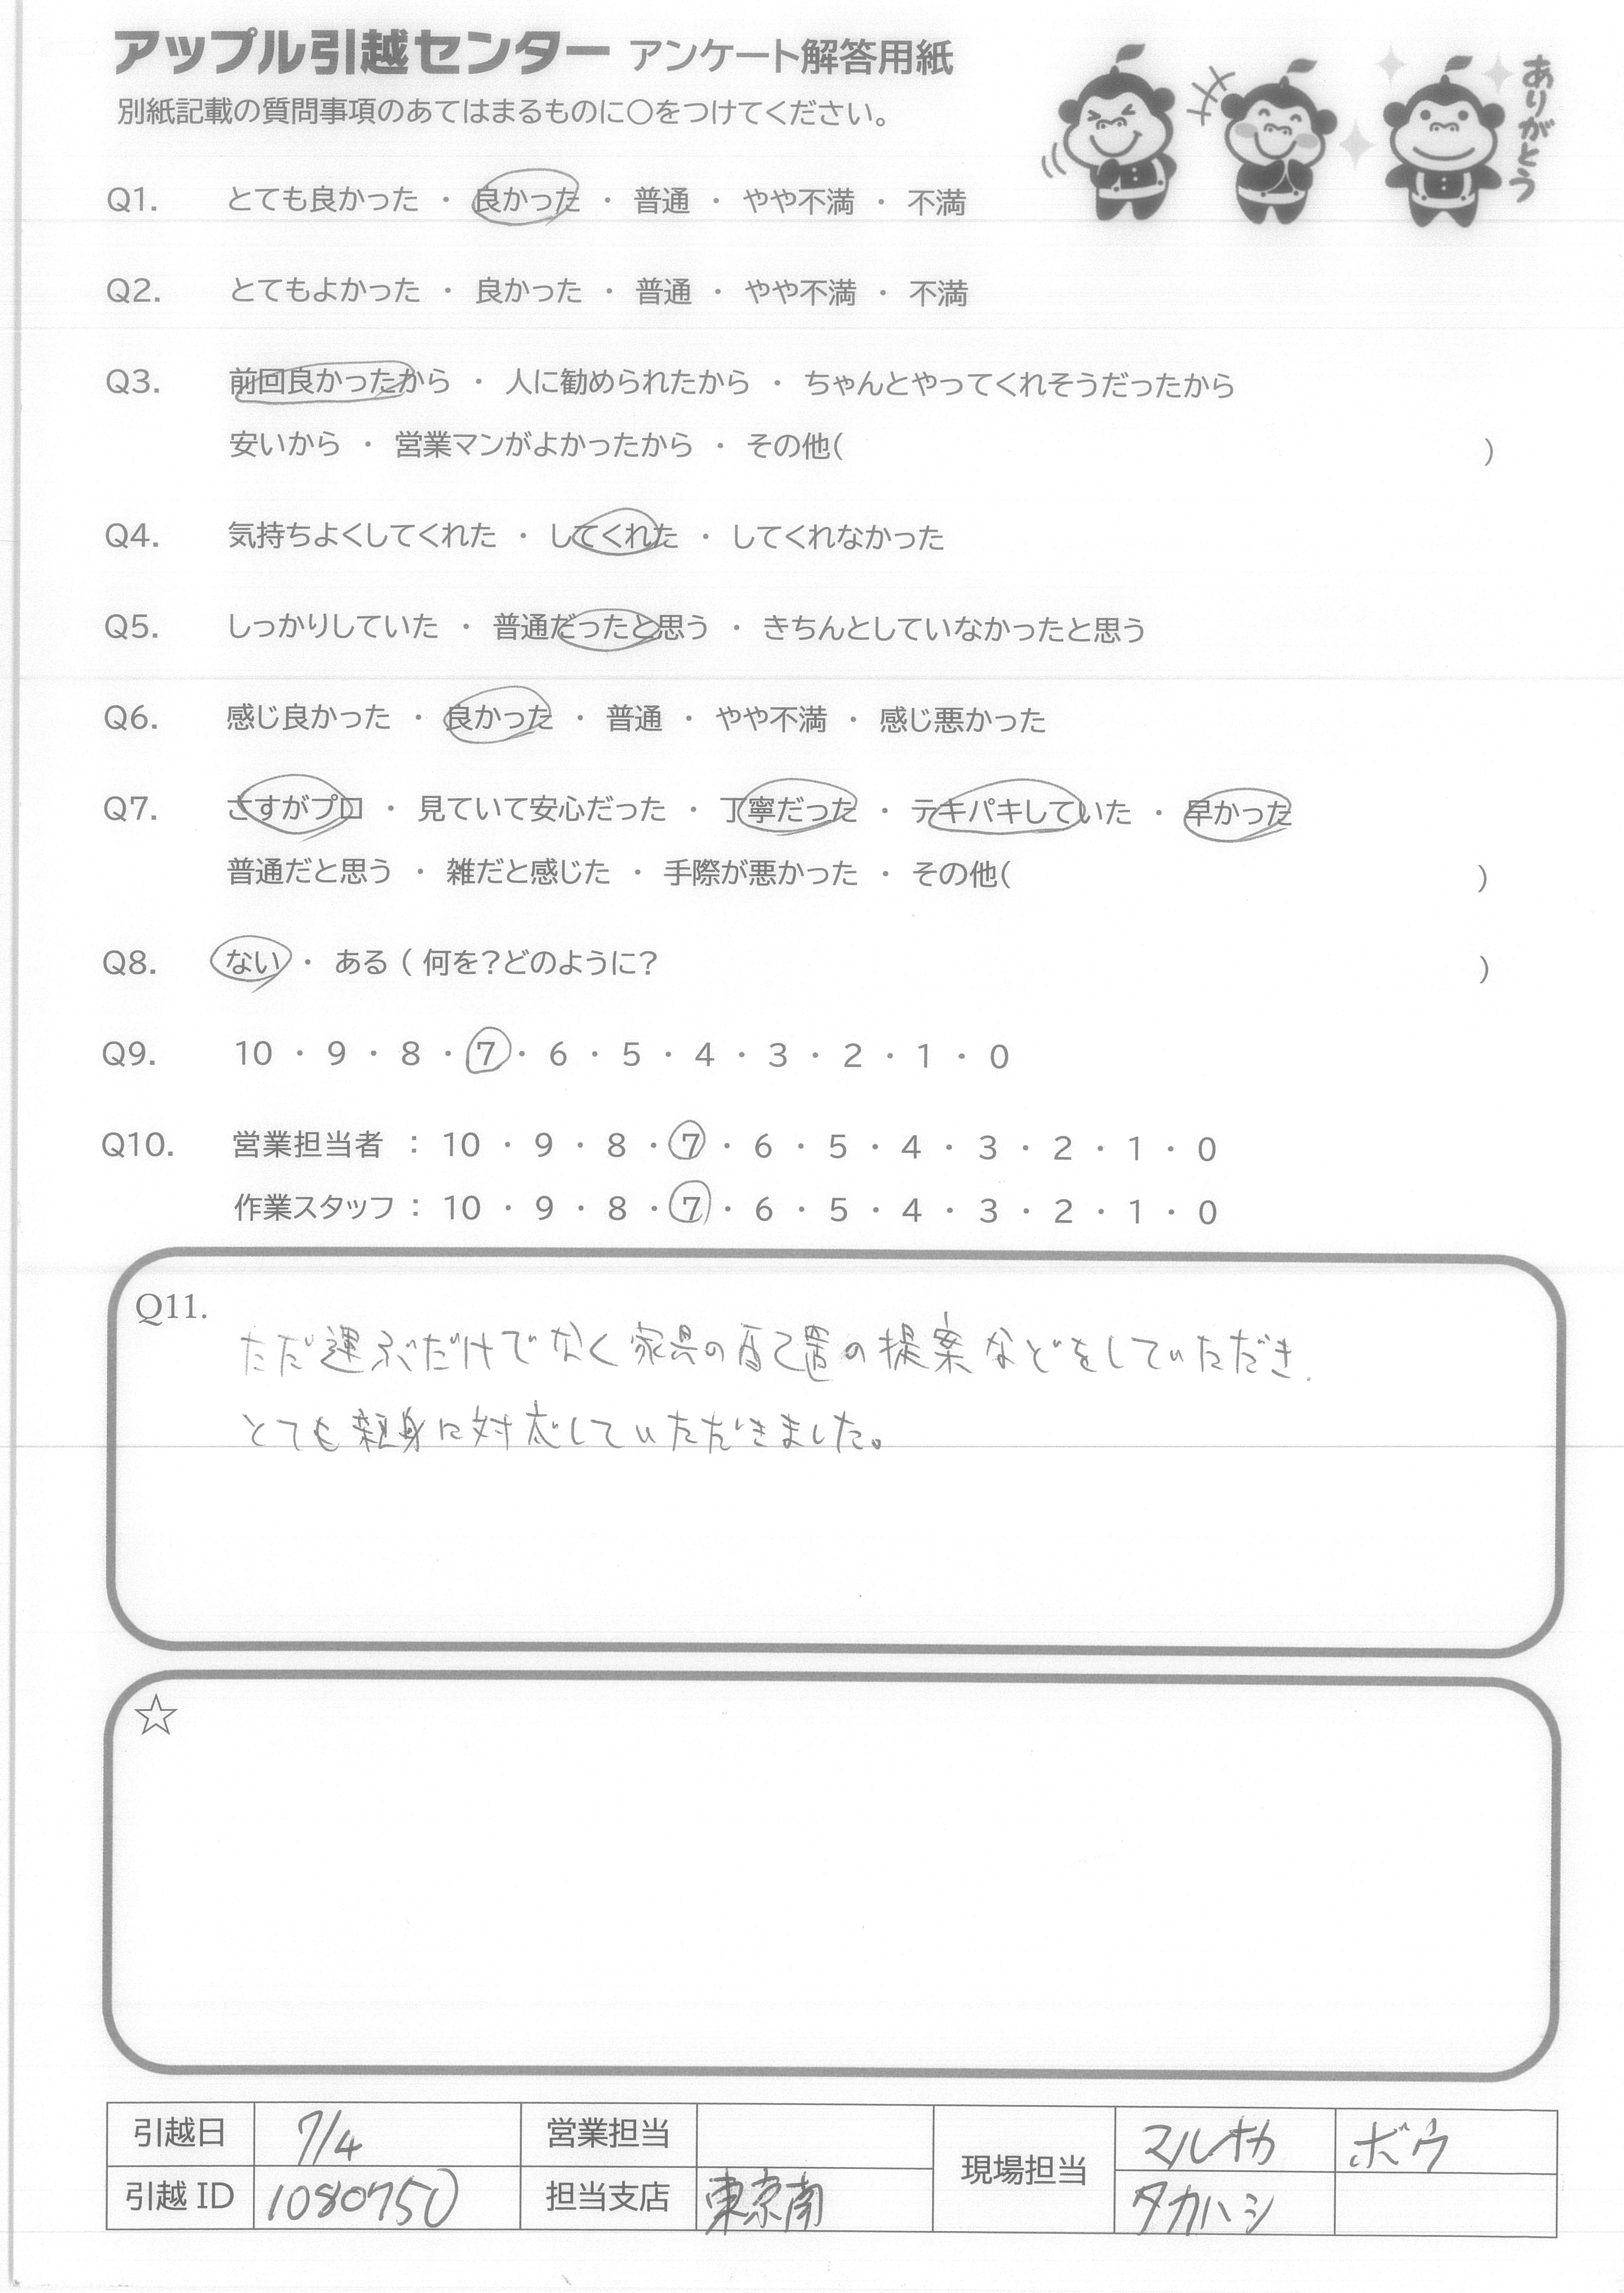 アップル引越センター アンケート解答用紙
別紙記載の質問事項のあてはまるものに〇をつけてください。
ありがとう
Q1. とても良かった ・ 良かった ・ 普通 ・ やや不満 ・ 不満
Q2. とてもよかった ・ 良かった ・ 普通 ・ やや不満 ・ 不満
Q3. 前回良かったから ・ 人に勧められたから ・ ちゃんとやってくれそうだったから
安いから ・ 営業マンがよかったから ・ その他( )
Q4. 気持ちよくしてくれた ・ してくれた ・ してくれなかった
Q5. しっかりしていた ・ 普通だったと思う ・ きちんとしていなかったと思う
Q6. 感じ良かった ・ 良かった ・ 普通 ・ やや不満 ・ 感じ悪かった
Q7. さすがプロ ・ 見ていて安心だった ・ 丁寧だった ・ テキパキしていた ・ 早かった
普通だと思う ・ 雑だと感じた ・ 手際が悪かった ・ その他( )
Q8. ない ・ ある ( 何を?どのように? )
Q9. 10 ・ 9 ・ 8 ・ 7 ・ 6 ・ 5 ・ 4 ・ 3 ・ 2 ・ 1 ・ 0
Q10. 営業担当者 : 10 ・ 9 ・ 8 ・ 7 ・ 6 ・ 5 ・ 4 ・ 3 ・ 2 ・ 1 ・ 0
作業スタッフ : 10 ・ 9 ・ 8 ・ 7 ・ 6 ・ 5 ・ 4 ・ 3 ・ 2 ・ 1 ・ 0
Q11.
ただ運ぶだけでなく家具の配置の提案などをしていただき、
とても親身に対応していただきました。
☆
引越日 7/4 営業担当 現場担当 マルオカ ボウ
引越 ID 1080750 担当支店 東京南 タカハシ